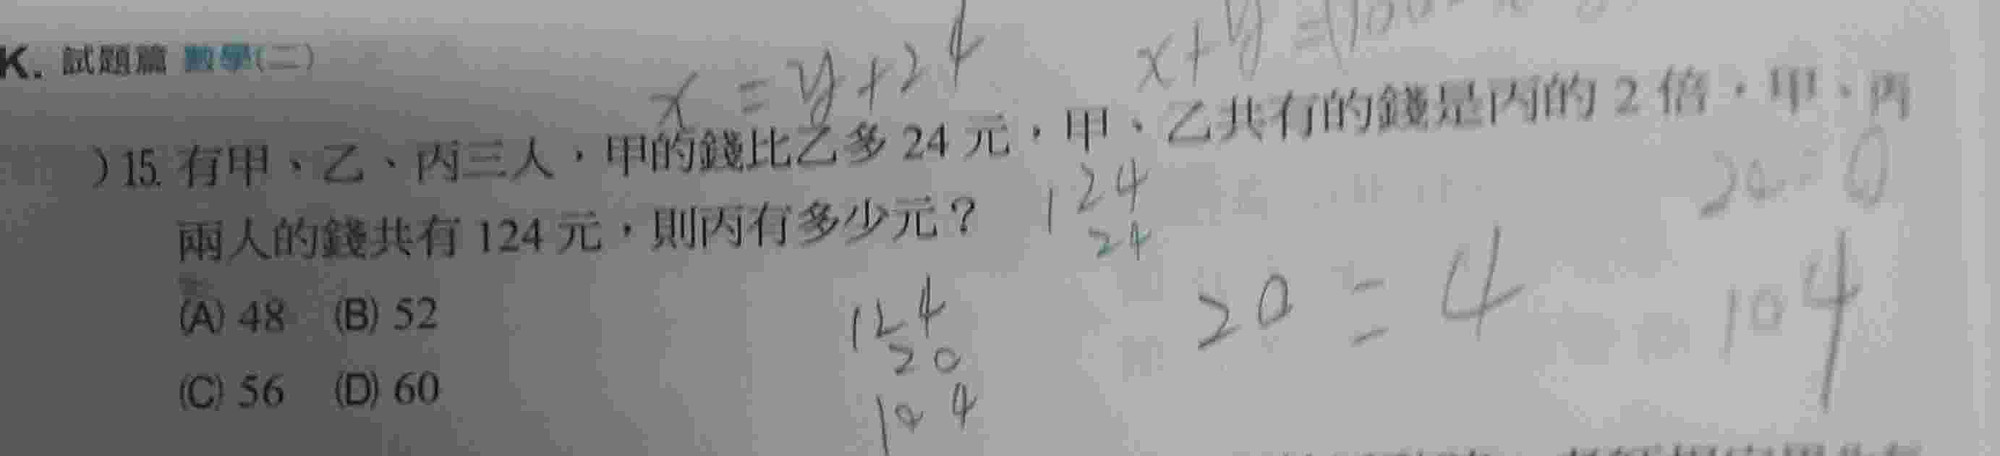 K. 試題篇 數學(二)
x = y + 24
x + y =
)15. 有甲、乙、丙三人，甲的錢比乙多 24 元，甲、乙共有的錢是丙的 2 倍，甲、丙
兩人的錢共有 124 元，則丙有多少元？
124
24
(A) 48 (B) 52
(C) 56 (D) 60
124
20
104
20 = 4
104